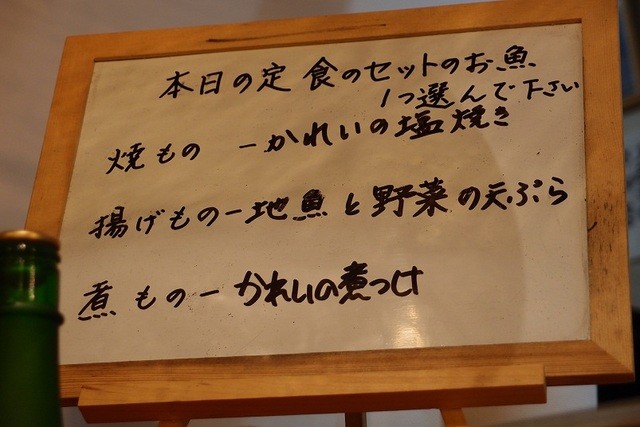 本日の定食のセットのお魚
1つ選んで下さい
焼もの ーかれいの塩焼き
揚げものー地魚と野菜の天ぷら
煮ものーかれいの煮つけ